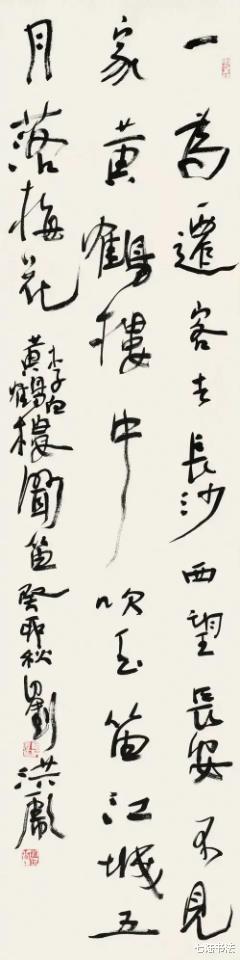 一為遷客去長沙西望長安不見
家黃鶴樓中吹玉笛江城五
月落梅花
李白
黃鶴樓聞笛癸卯秋劉洪彪
书法